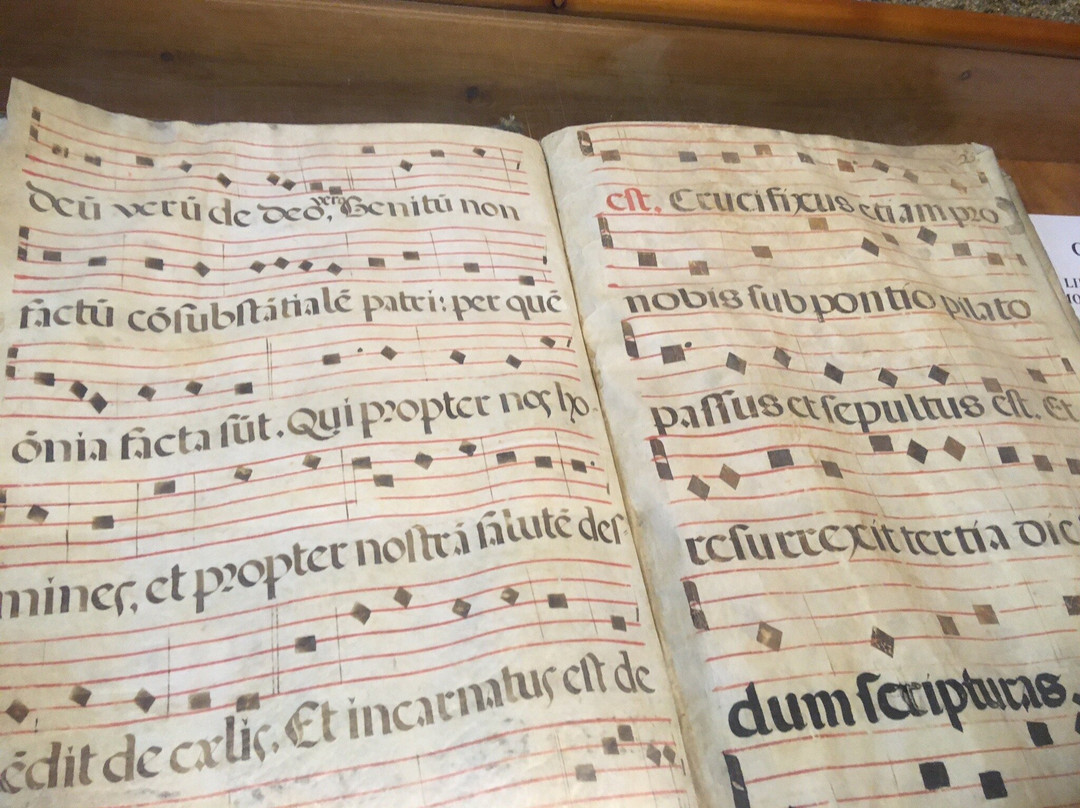 deū verū de deo, vero Genitū non
factū cōsubstātialē patri: per quē
ōnia facta sūt. Qui propter nos ho-
mines, et propter nostrā salutē des-
cēdit de cælis. Et incarnatus est de
est. Crucifixus etiam pro
nobis sub pontio pilato
passus et sepultus est. Et
resurrexit tertia die
dum scripturas.